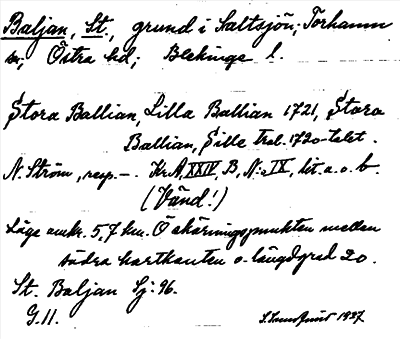 Baljan, St., grund i Saltsjön; Torhamn
sn; Östra hd; Blekinge l.
Stora Ballian, Lilla Ballian 1721, Stora
Ballian, Sille Trel. 1720-talet.
N. Ström, resp. –. Kr.A, XXIV, B, N:o IX, lit. a. o. b.
(Vänd!)
Läge omkr. 5,7 km. Ö skärningspunkten mellan
södra kartkanten o. längdgrad 20.
St. Baljan Sj: 96.
G. 11.
1927